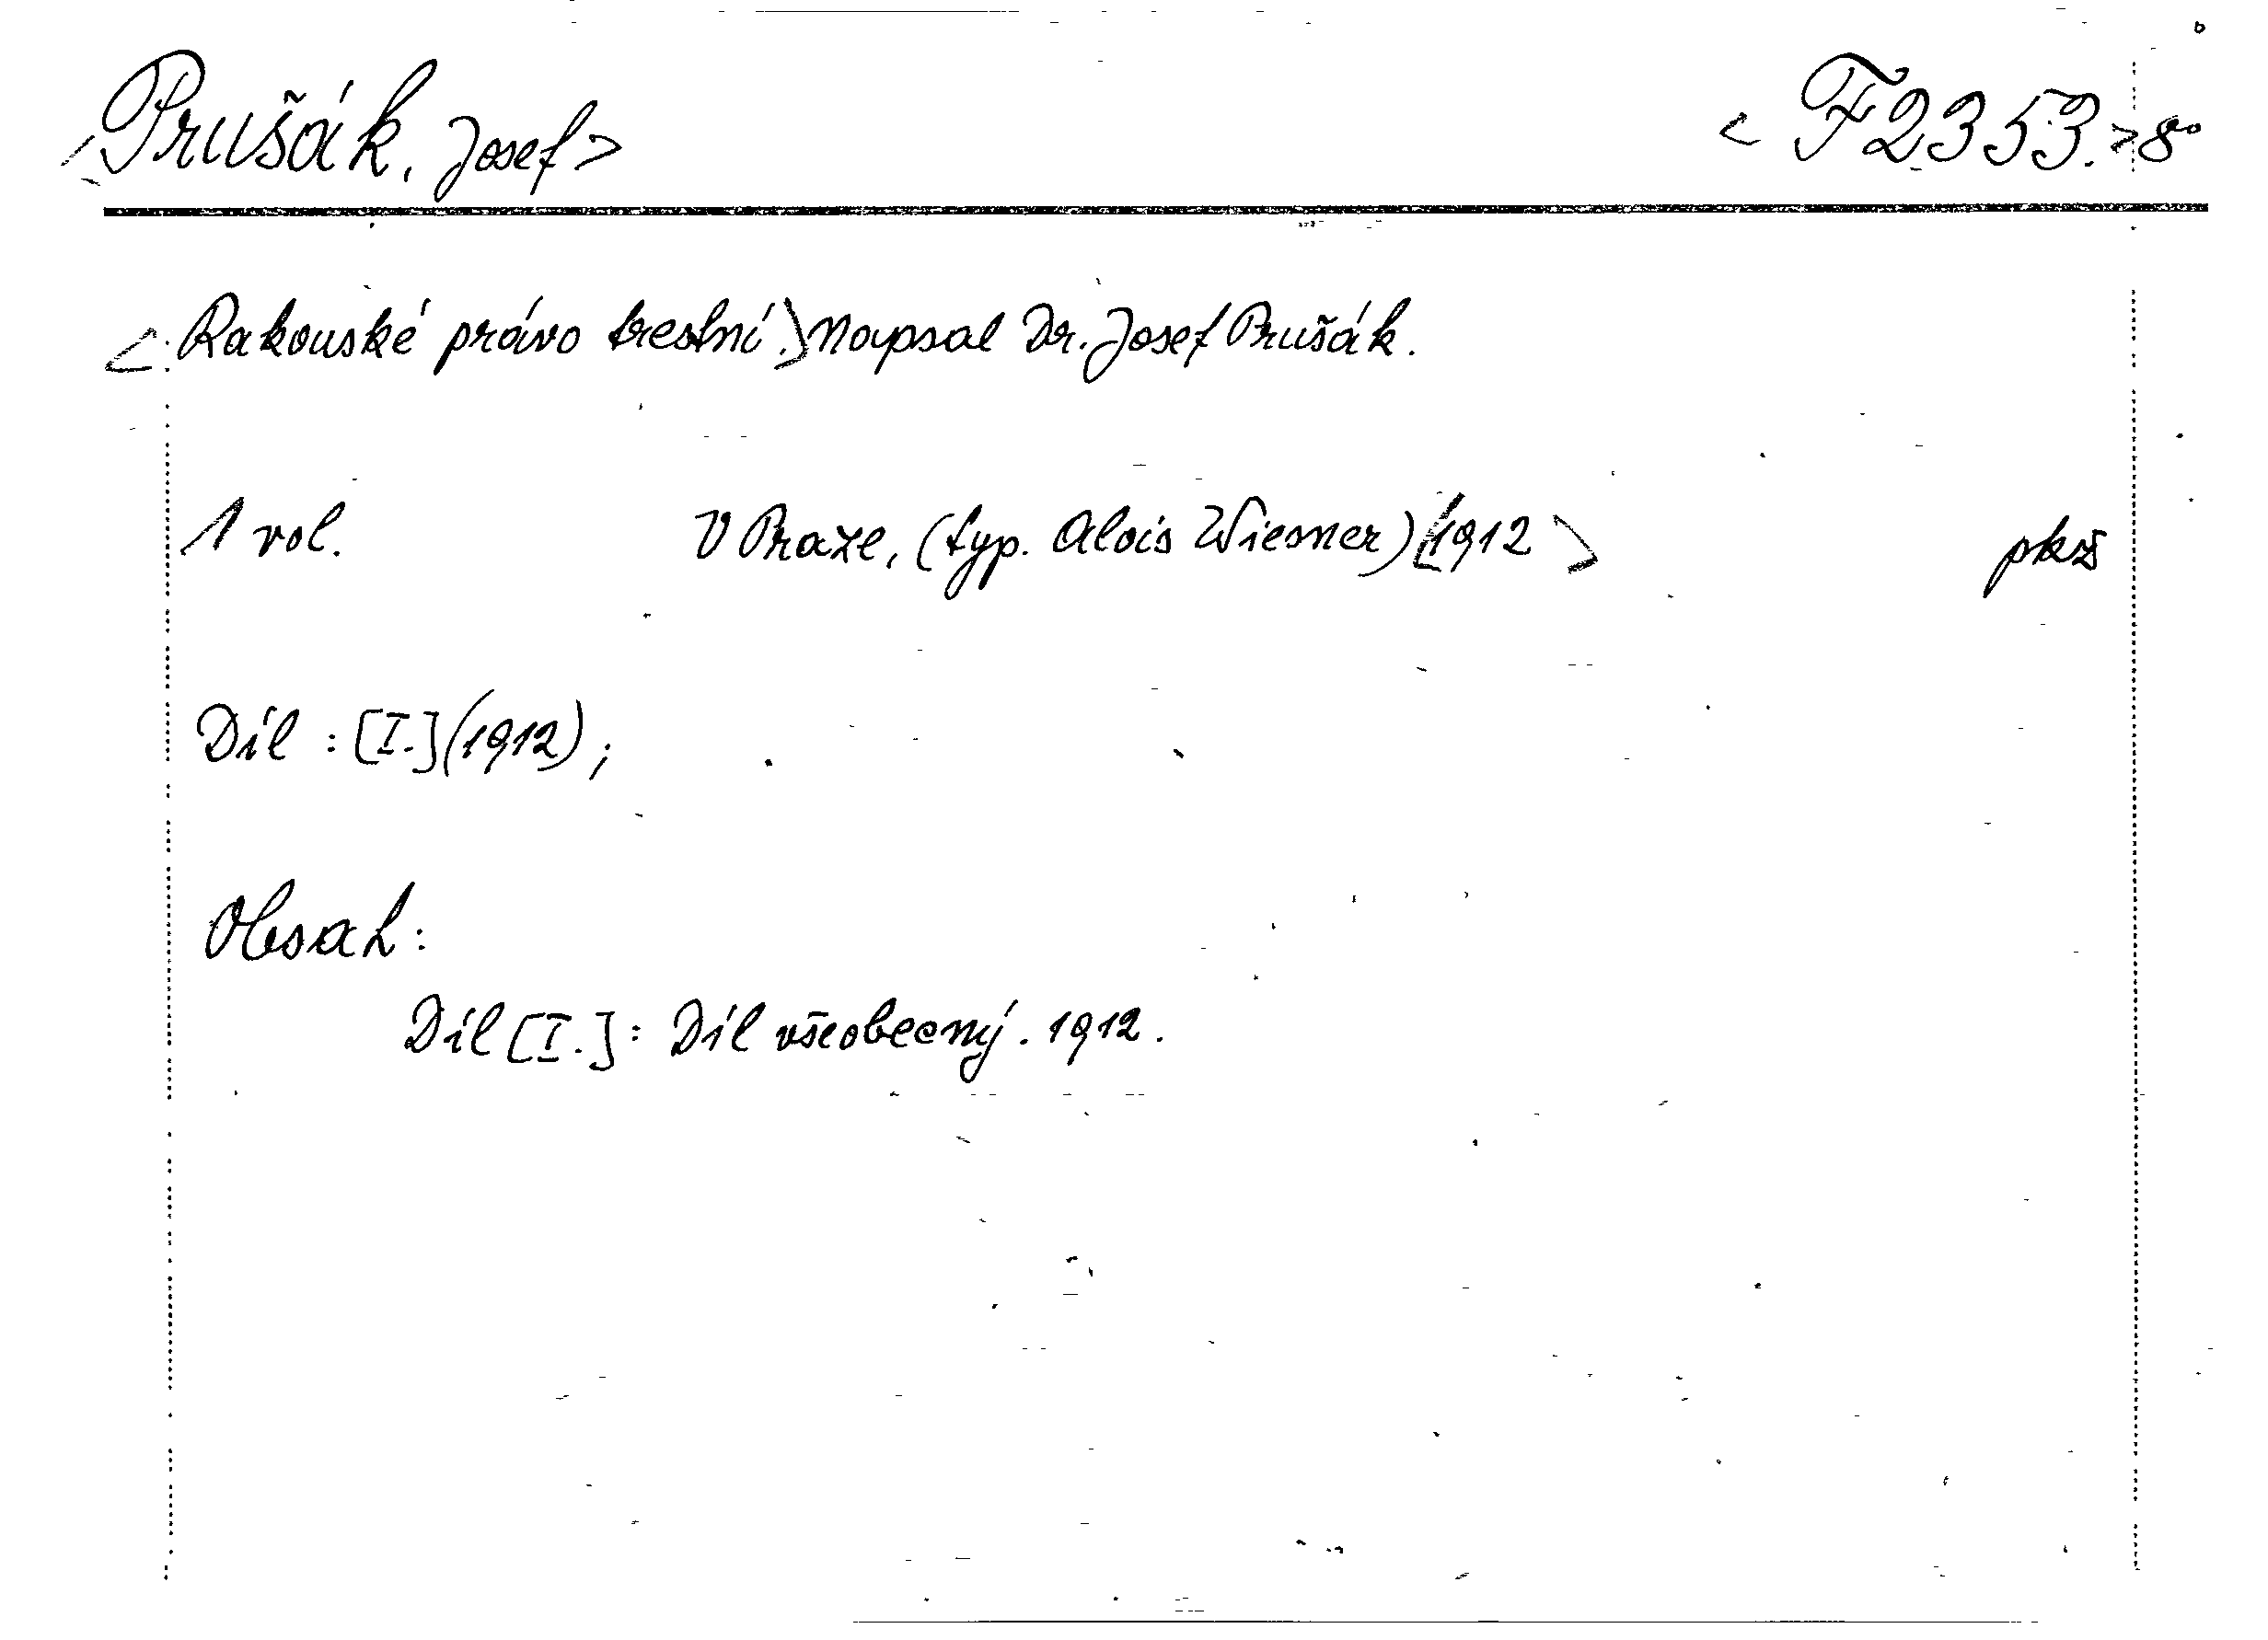 <Prušák, Josef> <F2353.>8°
<Rakouské právo trestní.> Napsal Dr. Josef Prušák.
1 vol. V Praze, (typ. Alois Wiesner) <1912>
Díl : [I.] (1912),
Obsah:
Díl [I.] : Díl všeobecný. 1912.